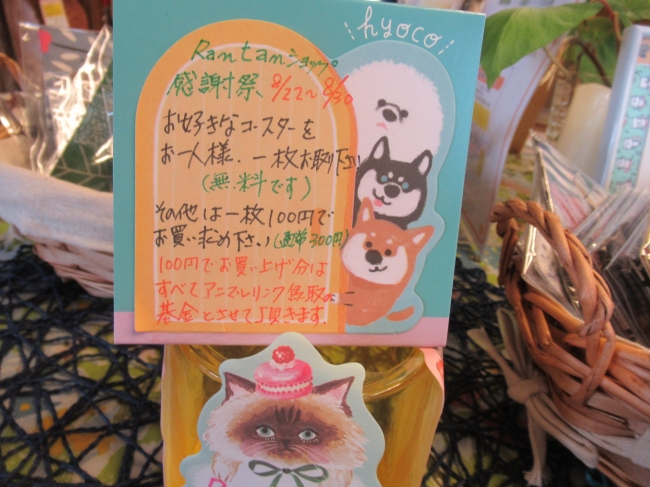 hyoco
Rantanショップ
感謝祭 8/22〜8/30
お好きなコースターを
お一人様、一枚お取り下さい
(無料です)
その他は一枚100円で
お買い求め下さい(通常300円)
100円でお買い上げ分は
すべてアニマルリンク鳥取の
基金とさせて頂きます。